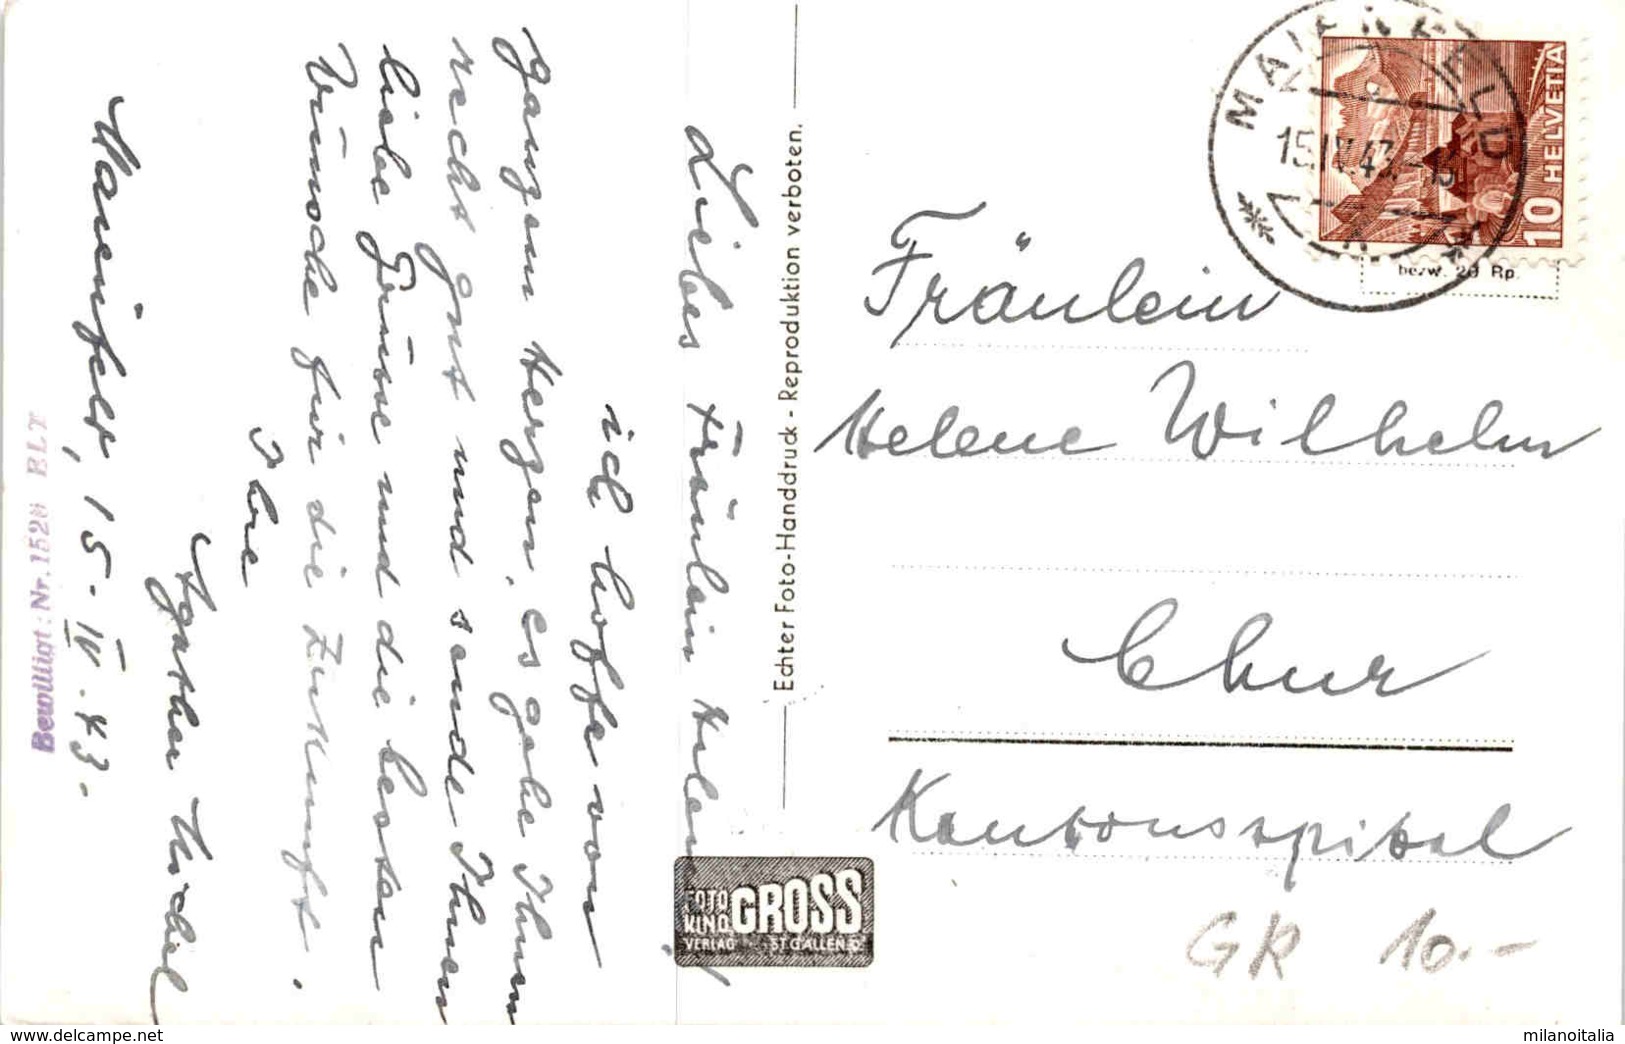 Liebes Fräulein Helene!
ich hoffe von
ganzem Herzen, es gehe Ihnen
recht gut und sende Ihnen
liebe Grüsse und die besten
Wünsche für die Zukunft.
Ihre
Agathe
Maienfeld, 15. IV. 43.
Bewilligt: Nr. 1520 BLT
Echter Foto-Handdruck - Reproduktion verboten.
FOTO
KINO GROSS
VERLAG ST. GALLEN O.
MAIENFELD
15.IV.43.
HELVETIA
10
bezw. 20 Rp.
Fräulein
Helene Wilhelm
Chur
Kantonsspital
GR 10.-
www.delcampe.net
milanoitalia